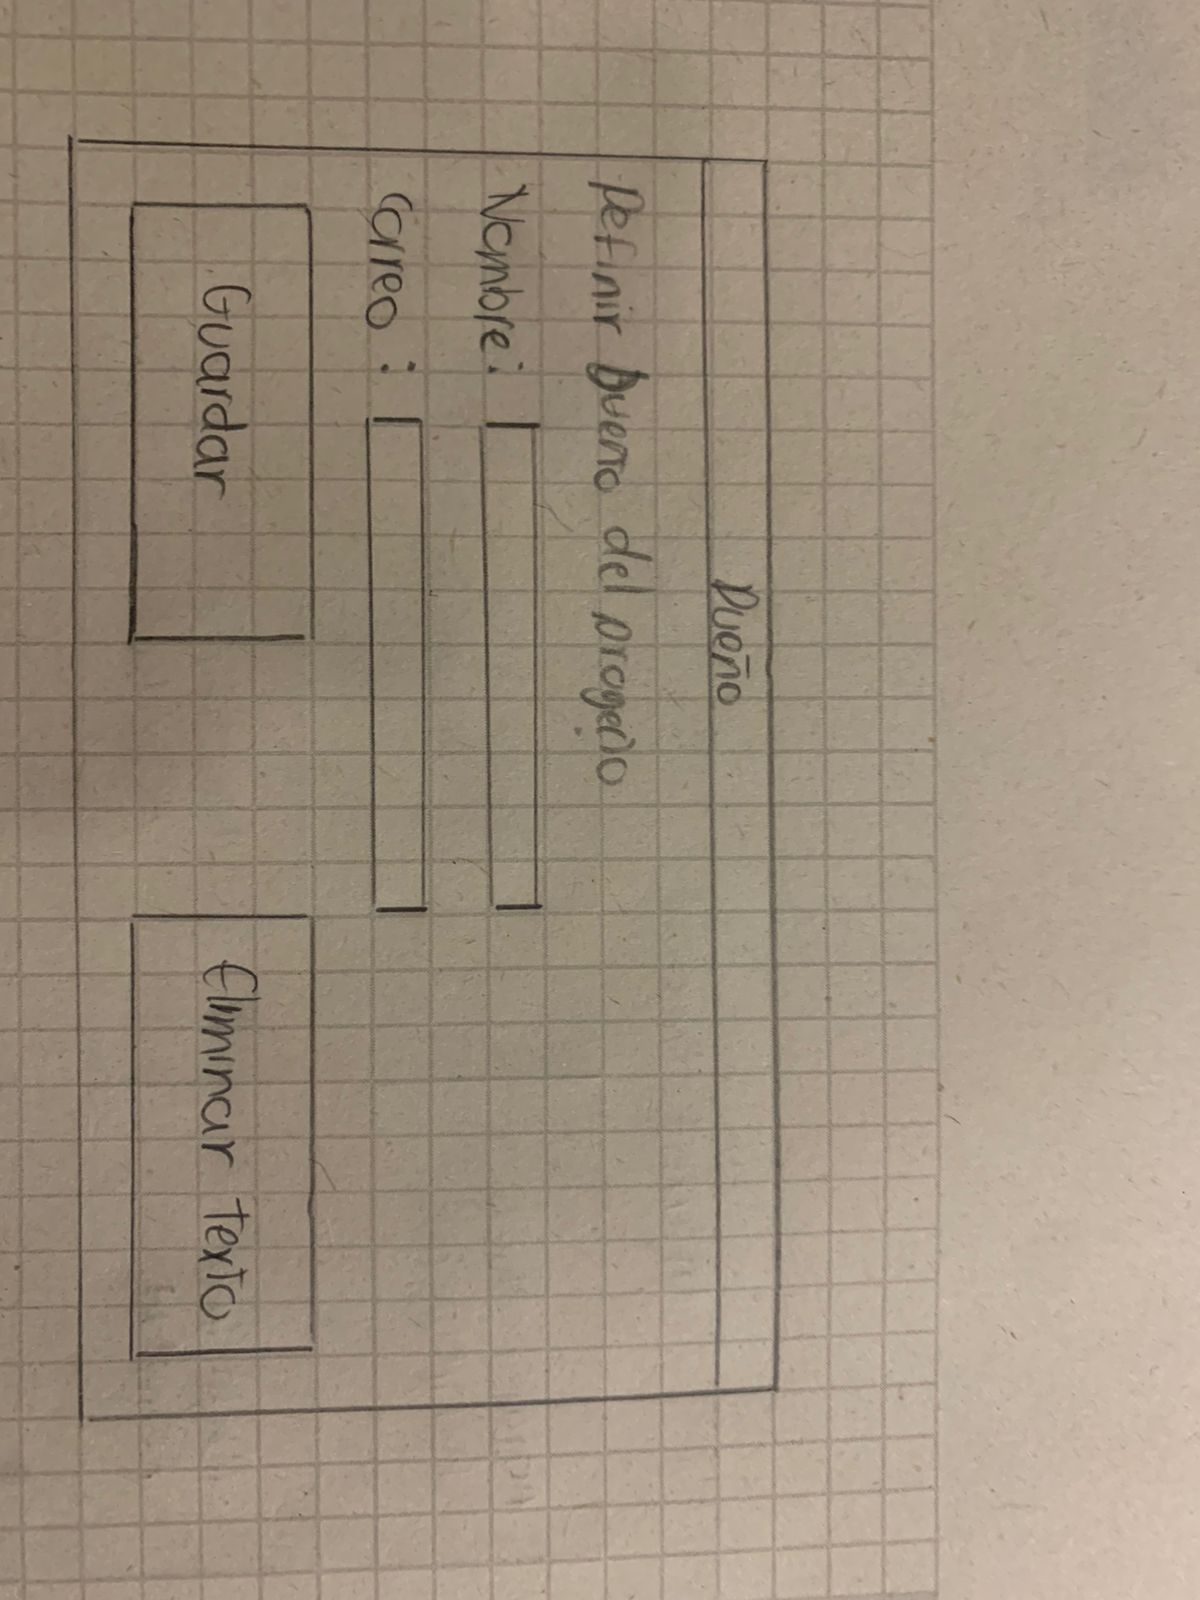 Dueño
Definir Dueño del proyecto
Nombre:
Correo :
Guardar
Eliminar Texto